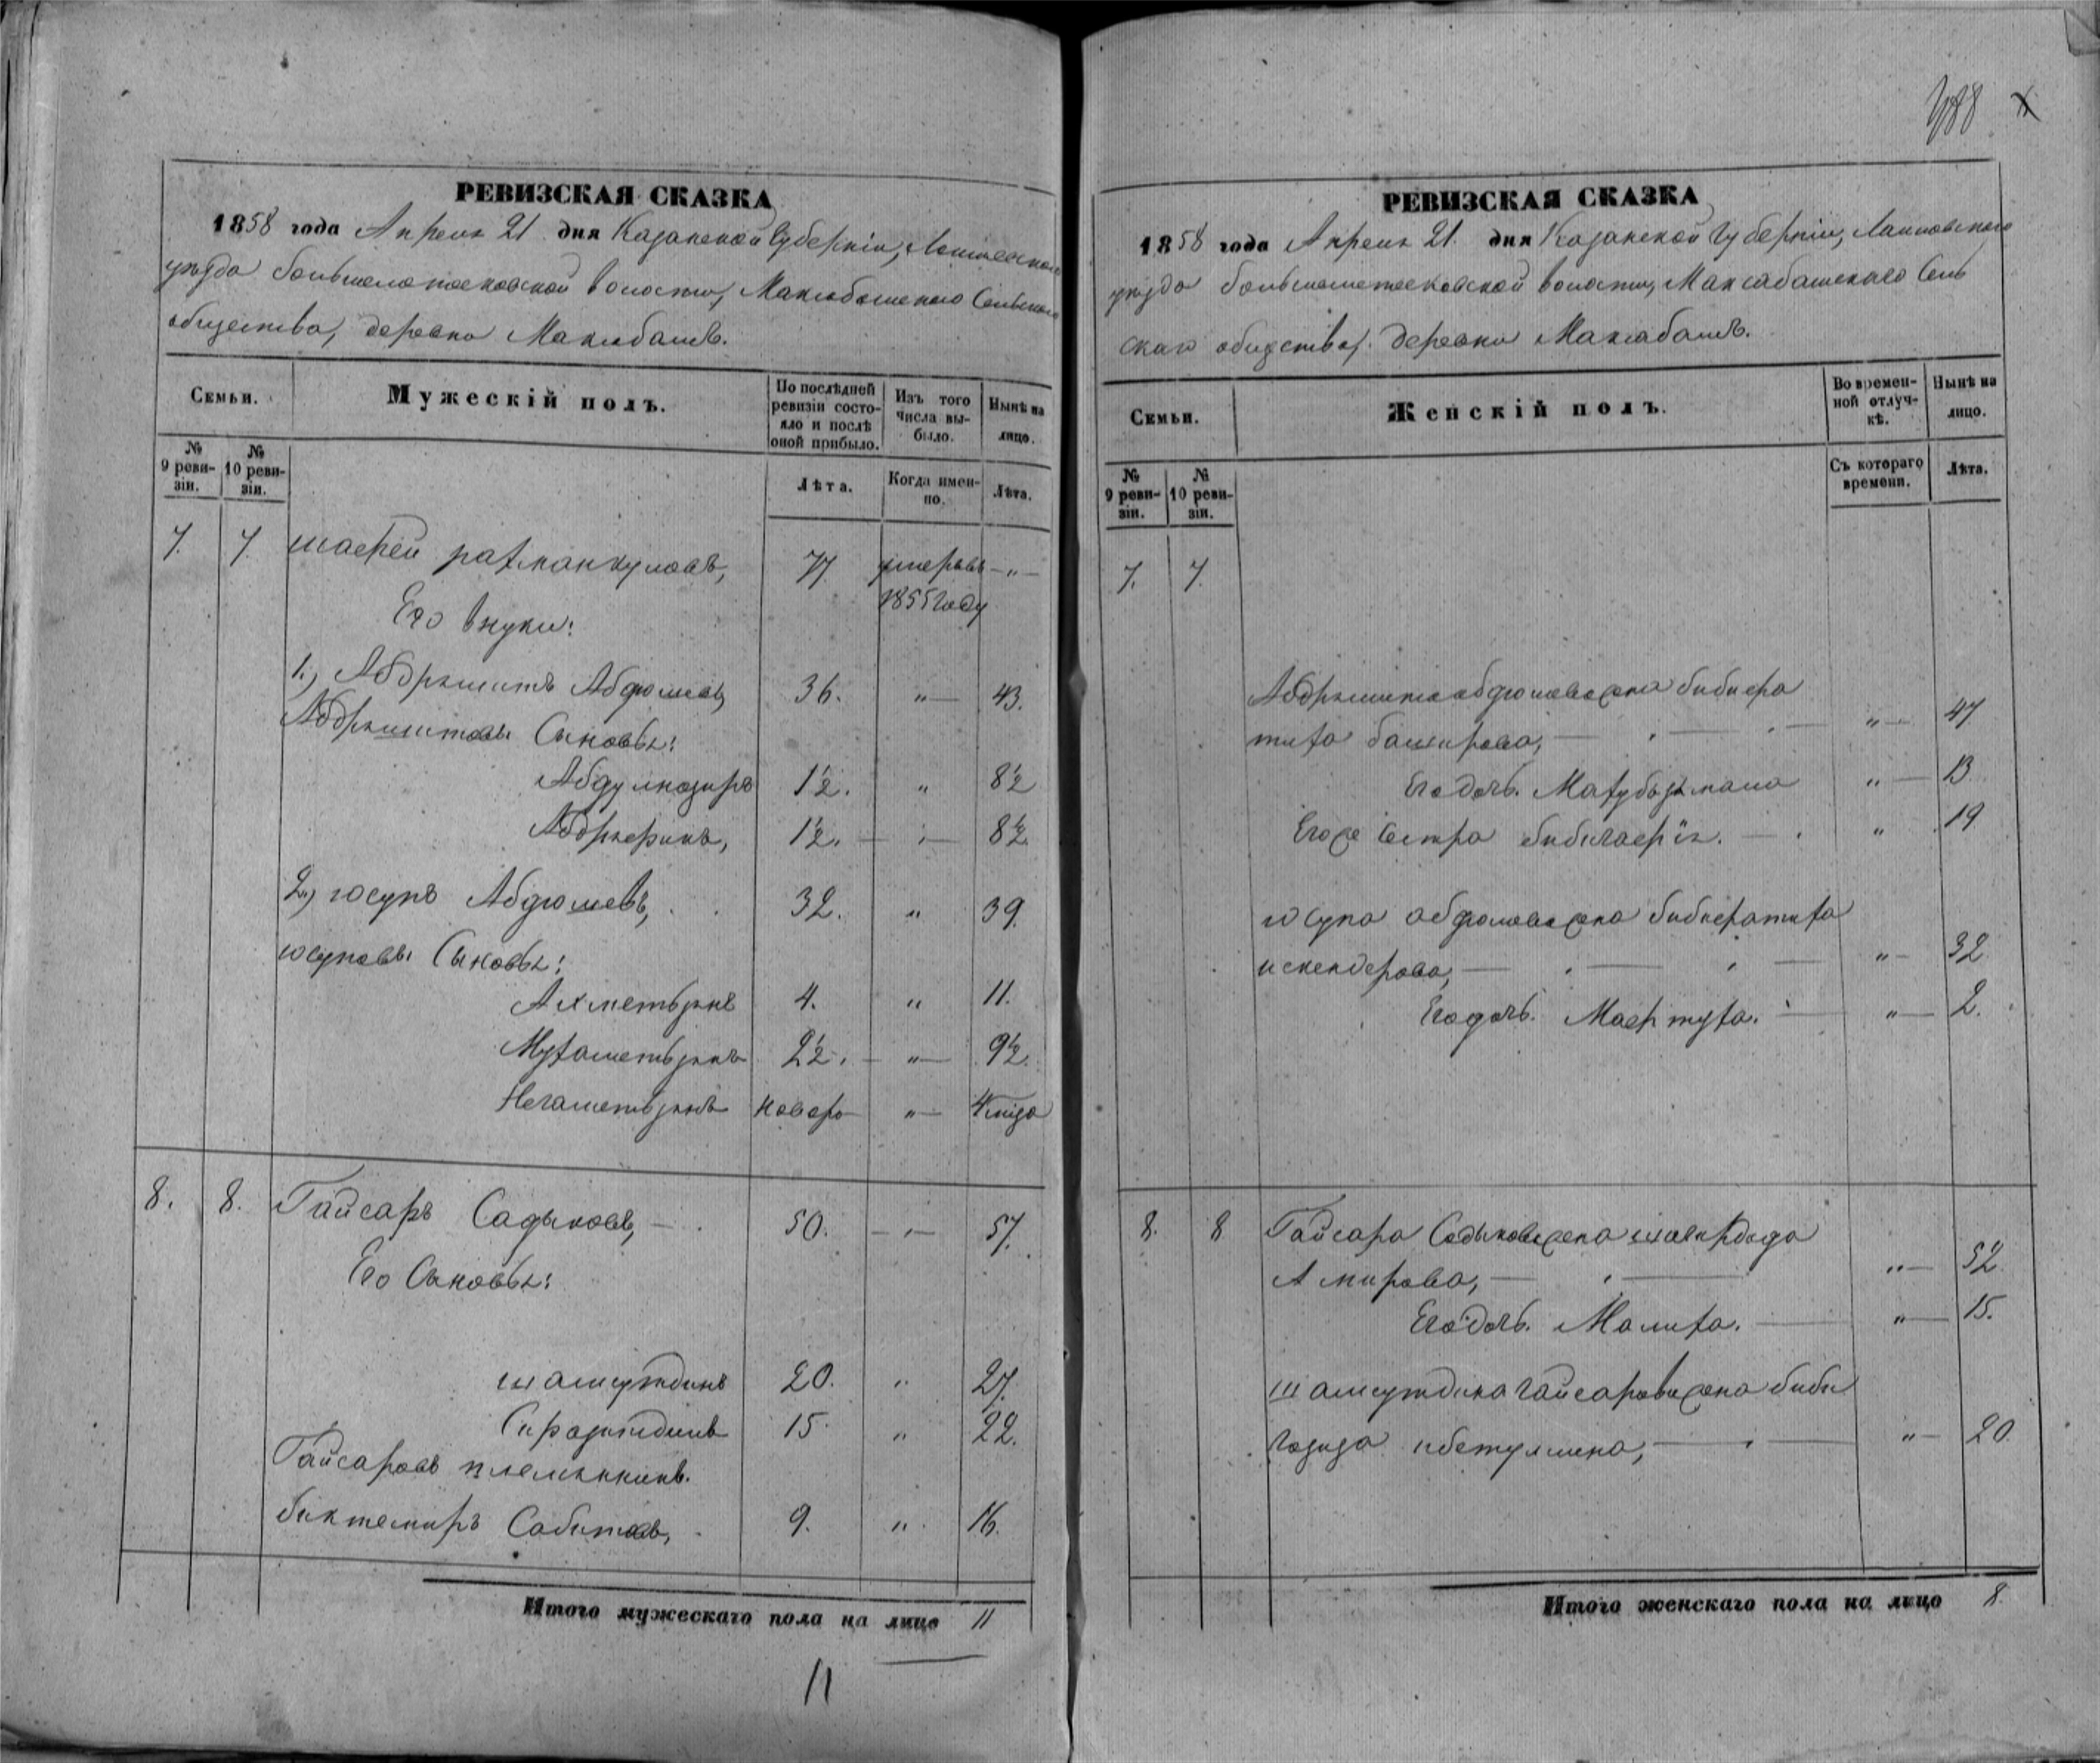 РЕВИЗСКАЯ СКАЗКА
1858 года Апреля 21 дня Казанской Губернiи, Лаишевскаго
уѣзда волости, Сельскаго
общества, деревни Максабашъ.
Семьи.
Мужескiй полъ.
По послѣдней ревизiи состояло и послѣ оной прибыло.
Изъ того числа выбыло.
Нынѣ на лицо.
№ 9 ревизiи.
№ 10 ревизiи.
Лѣта.
Когда именно.
Лѣта.
7. 7. шафей рахманкуловъ, 77 умеръ въ —"—
1855 году
Его внуки:
1.) Абдрешитъ Абдюшевъ, 36. "— 43.
Абдрешитовы Сыновья:
Абдулназыръ 1½. " 8½
Абдркеримъ, 1½. — "— 8½
2.) юсупъ Абдюшевъ, 32. " 39.
юсуповы Сыновья:
Ахметьзянъ 4. " 11.
Мухаметьзянъ 2½. — "— 9½.
Негаметьзянъ новоро "— 4 года
8. 8. Гайсаръ Садыковъ, — 50. — "— 57.
Его Сыновья:
шамсутдинъ 20. " 27.
Сиразитдинъ 15. " 22.
Гайсаровъ племянникъ.
биктемиръ Сабитовъ, 9. " 16.
Итого мужескаго пола на лицо 11
11
488
РЕВИЗСКАЯ СКАЗКА
1858 года Апреля 21. дня Казанской Губернiи, Лаишевскаго
уѣзда волости, Максабашскаго Сель
скаго общества, деревни Максабашъ.
Семьи.
Женскiй полъ.
Во временной отлучкѣ.
Нынѣ на лицо.
№ 9 ревизiи.
№ 10 ревизiи.
Съ котораго времени.
Лѣта.
7. 7.
Абдрешита абдюшева жена бибисра
тифа баширова, — "— 47
Его дочь. Махубьзямала "— 13
Его же Сестра " 19
юсупа абдюшева жена
искендерова, — "— 32
Его дочь. — "— 2.
8. 8 Гайсара Садыкова жена
Амирова, — "— 52.
Его дочь. Малифа. — "— 15.
шамсутдина гайсарова жена биби
газиза ибетуллина, — "— 20.
Итого женскаго пола на лицо 8.